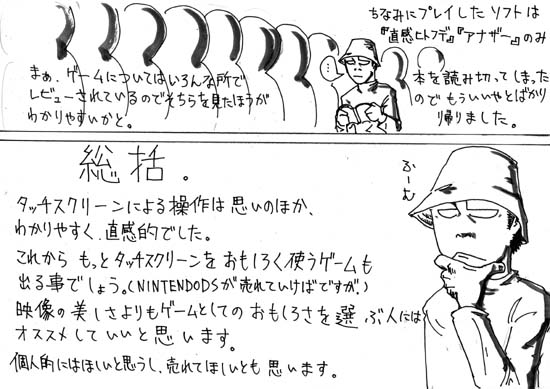 ちなみにプレイしたソフトは
『直感ヒトフデ』『アナザー』のみ
まぁ、ゲームについてはいろんな所で
レビューされているのでそちらを見たほうが
わかりやすいかと。
…
本を読み切ってしまった
のでもういいやとばかり
帰りました。
総括。
ふーむ
タッチスクリーンによる操作は思いのほか、
わかりやすく、直感的でした。
これからもっとタッチスクリーンをおもしろく使うゲームも
出る事でしょう。(NINTENDODSが売れていけばですが。)
映像の美しさよりもゲームとしてのおもしろさを選ぶ人には
オススメしていいと思います。
個人的にはほしいと思うし、売れてほしいとも思います。